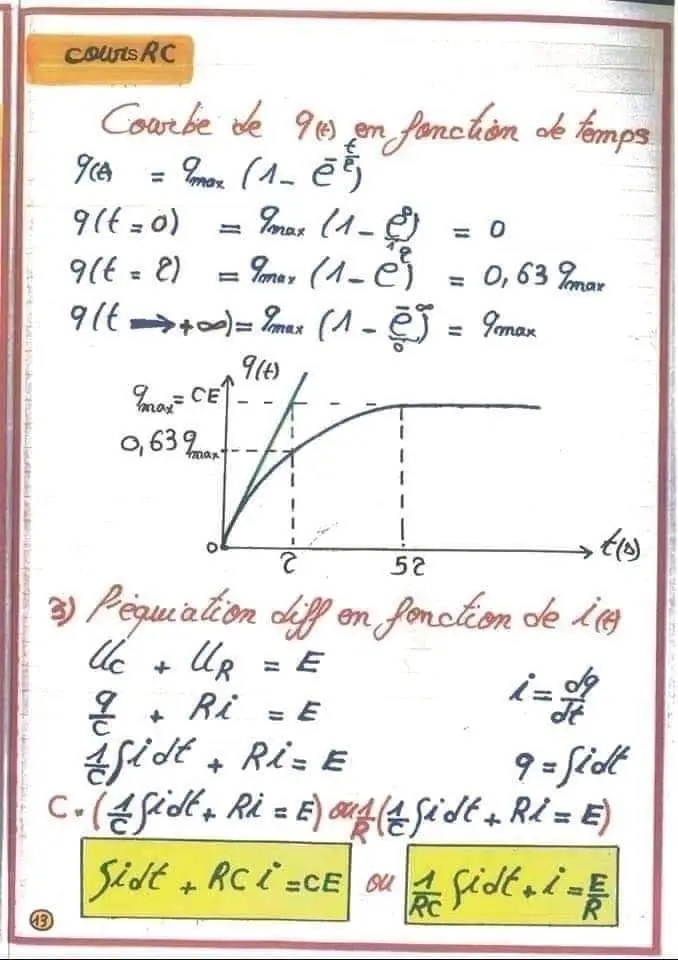 cours RC
Courbe de q(t) en fonction de temps
q(t) = qmax (1 - e^-t/τ)
q(t = 0) = qmax (1 - e^0) = 0
1
q(t = τ) = qmax (1 - e^-τ/τ) = 0,63 qmax
q(t → +∞) = qmax (1 - e^-∞) = qmax
0
q(t)
qmax = CE
0,63 qmax
0
τ
5τ
t(s)
3) l'équiation diff en fonction de i(t)
Uc + UR = E
i = dq/dt
q/C + Ri = E
1/C ∫idt + Ri = E
q = ∫idt
C . (1/C ∫idt + Ri = E) ou 1/R (1/C ∫idt + Ri = E)
∫idt + RC i = CE ou 1/RC ∫idt + i = E/R
13